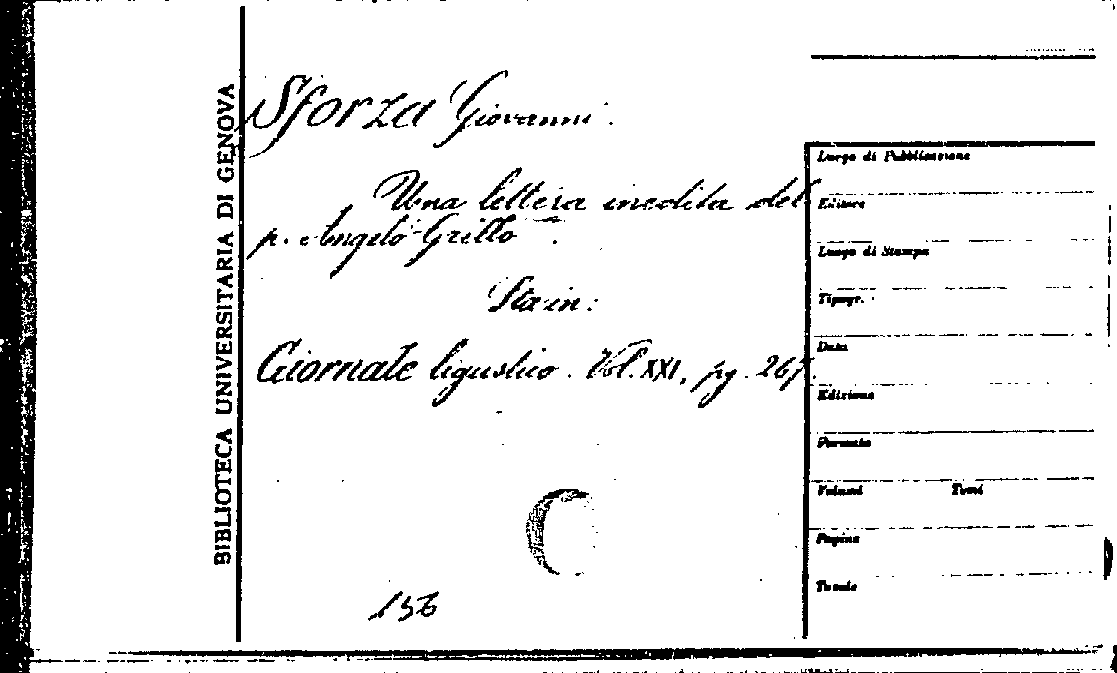 BIBLIOTECA UNIVERSITARIA DI GENOVA
Sforza Giovanni.
Una lettera inedita del
p. Angelo Grillo.
Sta in:
Giornale ligustico. Vol. XXI, pg. 267.
136
Luogo di Pubblicazione
Editore
Luogo di Stampa
Tipogr.
Data
Edizione
Formato
Volumi Tomi
Pagine
Tavole